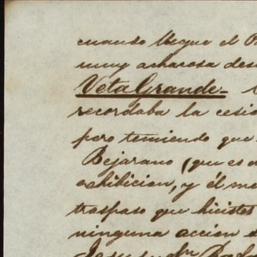 cuando llegue el
muy achacosa des
Veta Grande.
recordaba la cesi
pero temiendo que
Bejarano (que es
exhibicion, y él me
traspaso que hicistes
ninguna accion